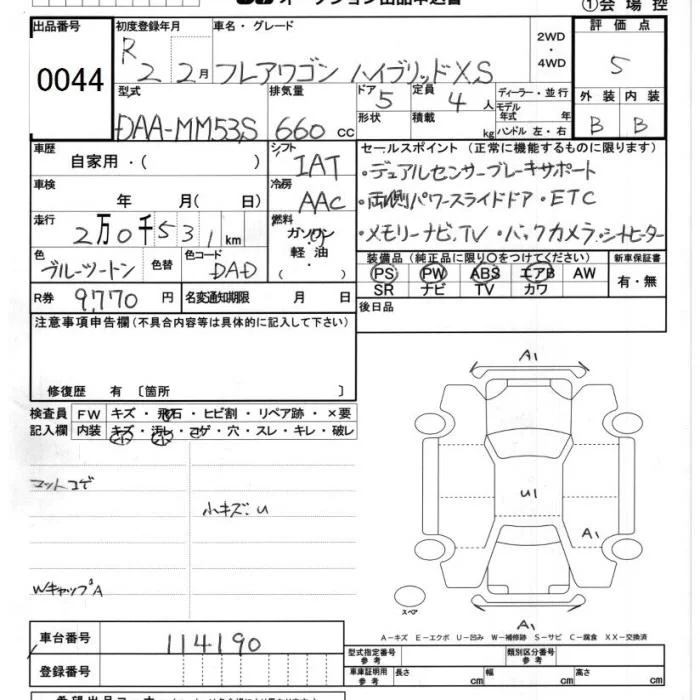 ①会場控
出品番号 初度登録年月 車名・グレード 2WD・4WD 評価点
0044 R2 2月 フレアワゴン ハイブリッドXS 5
型式 排気量 ドア 5 定員 4人 ディーラー・並行 外装 内装
DAA-MM53S 660cc 形状 積載 kg モデル年式 年 ハンドル 左・右 B B
車歴 自家用・( ) シフト IAT セールスポイント(正常に機能するものに限ります)
・デュアルセンサーブレーキサポート
車検 年 月( 日) 冷房 AAC ・両側パワースライドドア・ETC
走行 2万0千531km 燃料 ガソリン・軽油・( ) ・メモリーナビ,TV・バックカメラ・シートヒーター
色 ブルーツートン 色替 色コード DAD
装備品(純正品に限り○をつけてください) 新車保証書
PS PW ABS エアB AW 有・無
SR ナビ TV カワ
R券 9,770円 名変通知期限 月 日 後日品
注意事項申告欄(不具合内容等は具体的に記入して下さい)
修復歴 有〔箇所 〕
検査員 FW キズ・飛石・ヒビ割・リペア跡・×要
記入欄 内装 キズ・汚レ・コゲ・穴・スレ・キレ・破レ
マットコゲ
小キズ:U
WキャップA
A1
U1
A1
スペア
A1
A-キズ E-エクボ U-凹み W-補修跡 S-サビ C-腐食 XX-交換済
車台番号 114190
型式指定番号 参考 類別区分番号 参考
登録番号 車庫証明用 参考 長さ cm 幅 cm 高さ cm